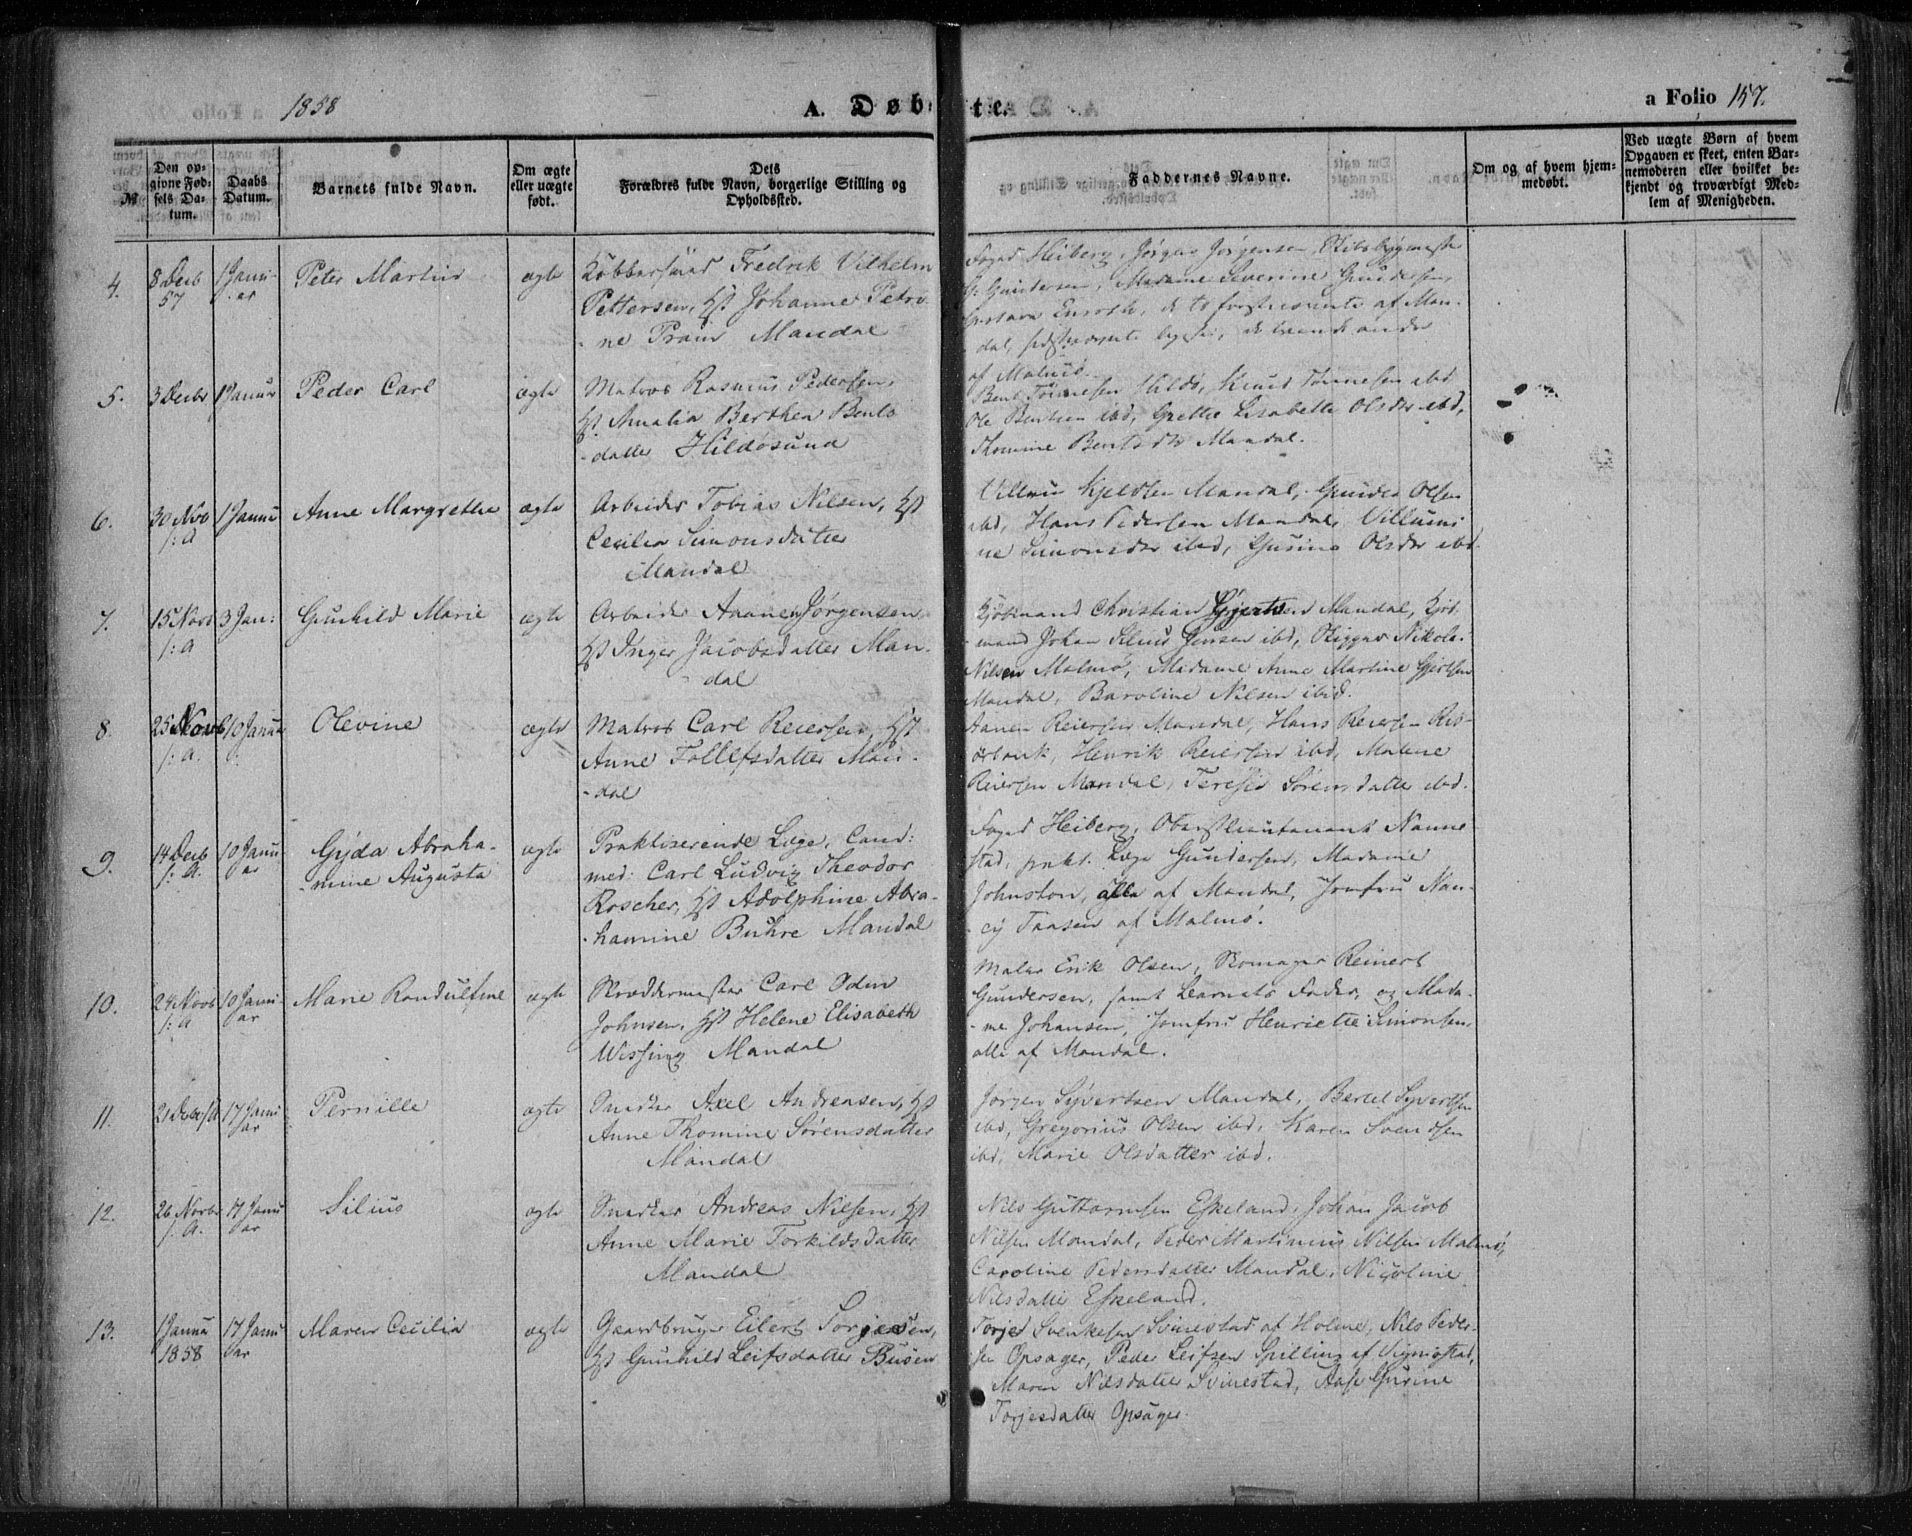 1858
A. Døbte.
a Folio 157.
№
Den op-
givne Fød-
sels Da-
tum.
Daabs
Datum.
Barnets fulde Navn.
Om ægte
eller uægte
født.
Dets
Forældres fulde Navn, borgerlige Stilling og
Opholdssted.
Faddernes Navne.
Om og af hvem hjem-
medøbt.
Ved uægte Børn af hvem
Opgaven er skeet, enten Bar-
nemoderen eller hvilket be-
kjendt og troværdigt Med-
lem af Menigheden.
4.
8 Decb
57
1 Janu-
ar
Peter Martin
ægte
Kobbersmed Fredrik Vilhelm
Pettersen, Hst Johanne Petri-
-ne Pram Mandal
Foged Heiberg, Jørgen Jørgensen, Skibsbygmester
G. Gundersen, Madame Severine Gundersen,
Gustava Enroth, de to førstnævnte af Man-
dal,
af Malmø.
5.
3 Decbr
1 Januar
Peder Carl
ægte
Matros Rasmus Pedersen,
Hst Amalia Berthea Bents-
datter Hildøsund
Bent Tønnesen Hildø, Knud Tønnesen ibd
Ole Bentsen ibd, Grethe Lisabette Olsdtr ibd,
Thomine Bentsdtr Mandal.
6.
30 Nov
s: A
1 Janu
Anne Margrethe
ægte
Arbeider Tobias Nilsen, Hst
Cecilia Simonsdatter
Mandal
Villum Kjeldsen Mandal, Gunder Olsen
ibd, Hans Pedersen Mandal, Villumi-
ne Simonsdtr ibd, Gusine Olsdtr ibd.
7.
15 Novb
s: A
3 Jan:
Gunhild Marie
ægte
Arbeider Aanen Jørgensen
Hst Inger Jacobsdatter Man-
dal
Kjøbmand Christian Gjertsen Mandal, Kjøb-
mand Johan Jensen ibd, Rigger Nikolai
Nilsen Malmø, Madame Anne Martine Gjertsen
Mandal, Baroline Nilsen ibid.
8.
25 Novb
s: A.
10 Janua
Olevine
ægte
Matros Carl Reiersen, Hst
Anne Tollefsdatter Man-
-dal
Aanen Reiersen Mandal, Hans Reiersen Ris-
øbank, Henrik Reiersen ibd, Malene
Reiersen Mandal, Teresie Sørensdatter ibd.
9.
14 Decb
s: A.
10 Janu
ar
Gyda Abraha-
-mine Augusta
ægte
Praktiserende Læge, Cand:
med: Carl Ludvig Theodor
Roscher, Hst Adolphine Abra-
-hamine Buhre Mandal
Foged Heiberg, Oberstlieutenant Nanne-
stad, prakt. Læge Gundersen, Madame
Johnston, alle af Mandal, Jomfru Nan-
-cy Taasen af Malmø.
10.
24 Novb
s: A
10 Janu-
ar
Marie Randulfine
ægte
Skræddermester Carl Odin
Johnsen, Hst Helene Elisabeth
Wissing Mandal
Maler Erik Olsen, Skomager Reinert
Gundersen, samt Barnets Fader, og Mada-
-me Johansen, Jomfru Henriette Simonsen,
alle af Mandal.
11.
21 Decb s: A
17 Janu
ar
Pernille
ægte
Snedker Axel Andreasen, Hst
Anne Thomine Sørensdatter
Mandal
Jørgen Syvertsen Mandal, Bertel Syvertsen
ibd, Gregorius Olsen ibd, Karen Svendsen
ibd, Marie Olsdatter ibd.
12.
26 Novbr
s: A.
17 Janu
ar
Silius
ægte
Snedker Andreas Nilsen, Hst
Anne Marie Torkildsdatter
Mandal
Nils Guttormsen Eskeland, Johan Jacob
Nilsen Mandal, Peder Martinius Nilsen Malmø,
Caroline Pedersdatter Mandal, Nicoline
Nilsdatter Eskeland.
13.
1 Janua
1858
17 Janu
ar
Maren Cecilia
ægte
Gaardbruger Eilert Torjesen,
Hst Gunhild Leifsdatter Busen
Torjed Svenkesen Svinestad af Holme, Nils Peder-
sen Opsager, Peder Leifsen Spilling af Vignestad,
Maren Nilsdatter Svinestad, Aase Gurine
Torjesdatter Opsager.